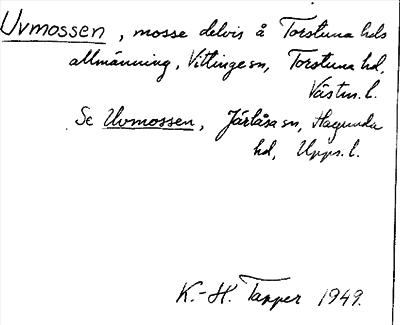 Uvmossen, mosse delvis å Torstuna hds
allmänning, Vittinge sn, Torstuna hd,
Västm. l.
Se Uvmossen, Järlåsa sn, Hagunda
hd, Upps. l.
K.-H. Tapper 1949.